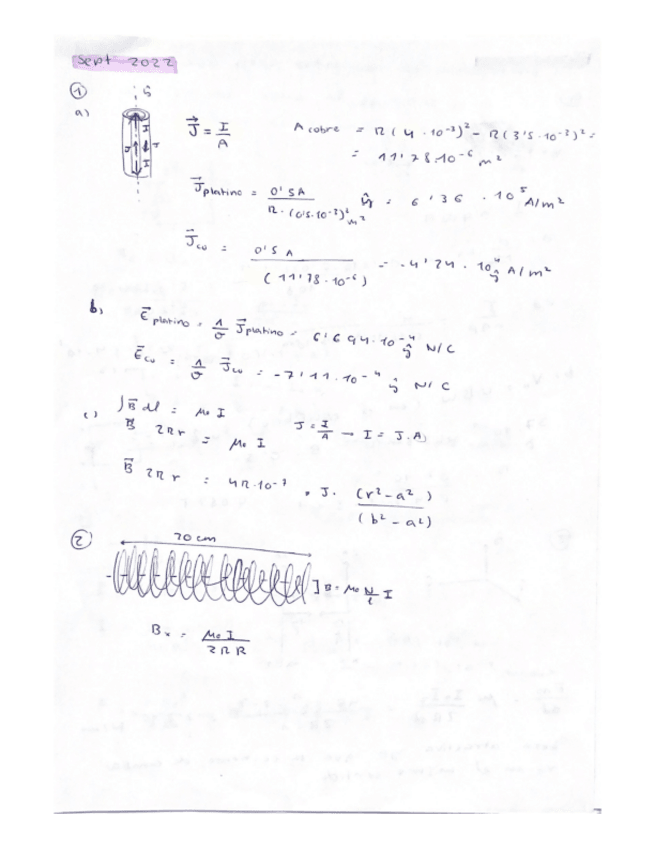 Sept 2022
① ŷ
a) J⃗ = I/A A cobre = π(4·10⁻³)² − π(3'5·10⁻³)² =
= 11'78·10⁻⁶ m²
I I J J I
J⃗platino = 0'5A / π·(0'5·10⁻³)² m² ŷ = 6'36 · 10⁵ A/m²
J⃗cu = 0'5 A / (11'78·10⁻⁶) = -4'24 · 10⁴ ŷ A/m²
b) E⃗platino = 1/σ J⃗platino = 6'694·10⁻⁴ ŷ N/C
E⃗cu = 1/σ J⃗cu = -7'11·10⁻⁴ ŷ N/C
c) ∫B⃗ dl = μ₀ I
B⃗ 2πr = μ₀ I J = I/A → I = J·A)
B⃗ 2πr = 4π·10⁻⁷ · J · (r² − a²) / (b² − a²)
② 70 cm
] B = μ₀ N/l I
Bₓ = μ₀ I / 2πR